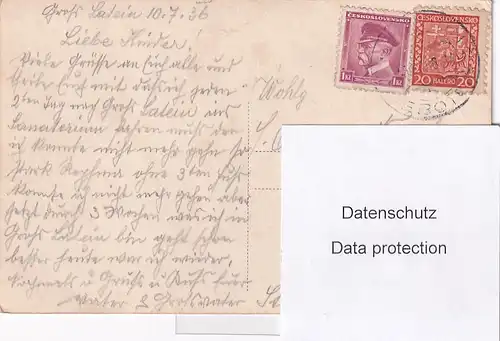 Gross Latein 10.7.36
Liebe Kinder!
Viele Grüsse an Euch alle und
teile Euch mit das ich jeden
2ten Tag nach Gross Latein ins
Sanatorium fahren muss den
ich konnte nicht mehr gehn so
stark ohne 3ten Fuss
konnte ich nicht mehr gehen aber
jetzt durch 3 Wochen was ich in
Gross Latein bin geht schon
besser heute war ich wieder,
nochmals u Gruss u Kuss Euer
Vater & Grossvater
Wohlg
S.
ČESKOSLOVENSKO
1 Kč 1 Kč
ČESKOSLOVENSKO
20 HALÉŘŮ 20
Datenschutz
Data protection